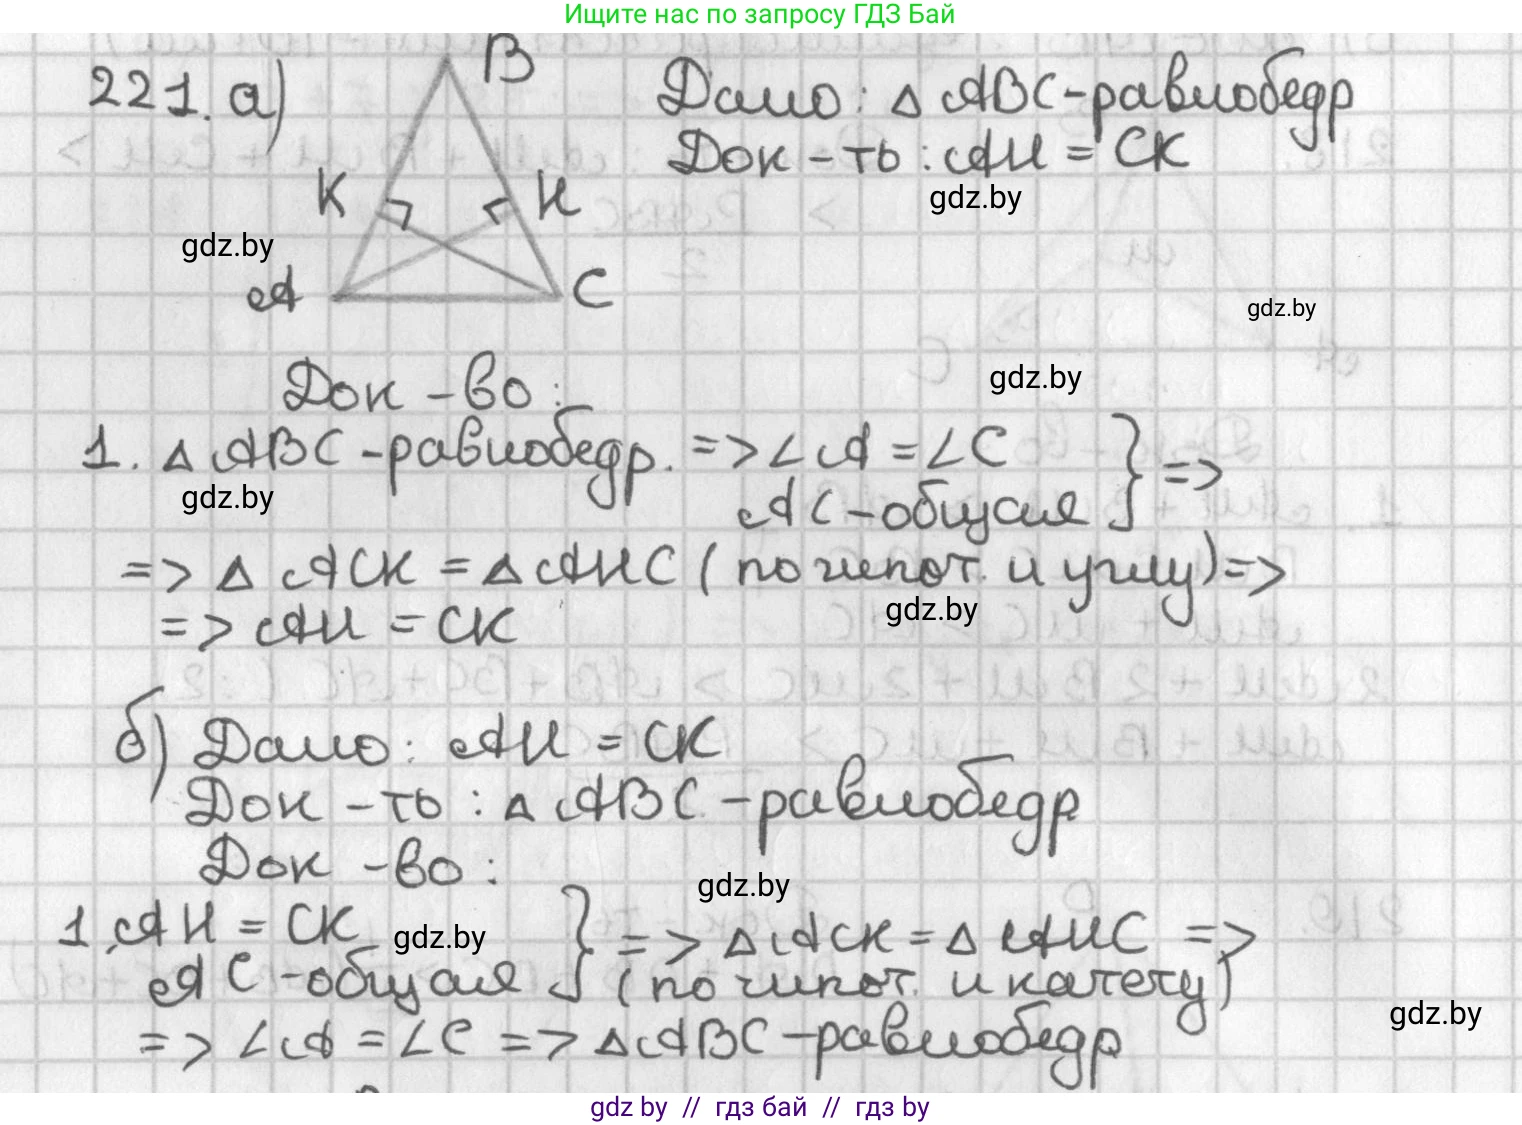 Ищите нас по запросу ГДЗ Бай
221. а)
B
Дано: △ ABC - равнобедр
Док - ть: AH = CK
gdz.by
K
H
gdz.by
A
C
gdz.by
Док - во:
gdz.by
1. △ ABC - равнобедр. => ∠A = ∠C } =>
gdz.by
AC - общая
=> △ ACK = △ AHC ( по гипот. и углу) =>
gdz.by
=> AH = CK
б) Дано: AH = CK
Док - ть: △ ABC - равнобедр
Док - во:
gdz.by
1. AH = CK } => △ ACK = △ AHC =>
gdz.by
AC - общая (по гипот. и катету)
gdz.by
=> ∠A = ∠C => △ ABC - равнобедр
gdz by // гдз бай // гдз by